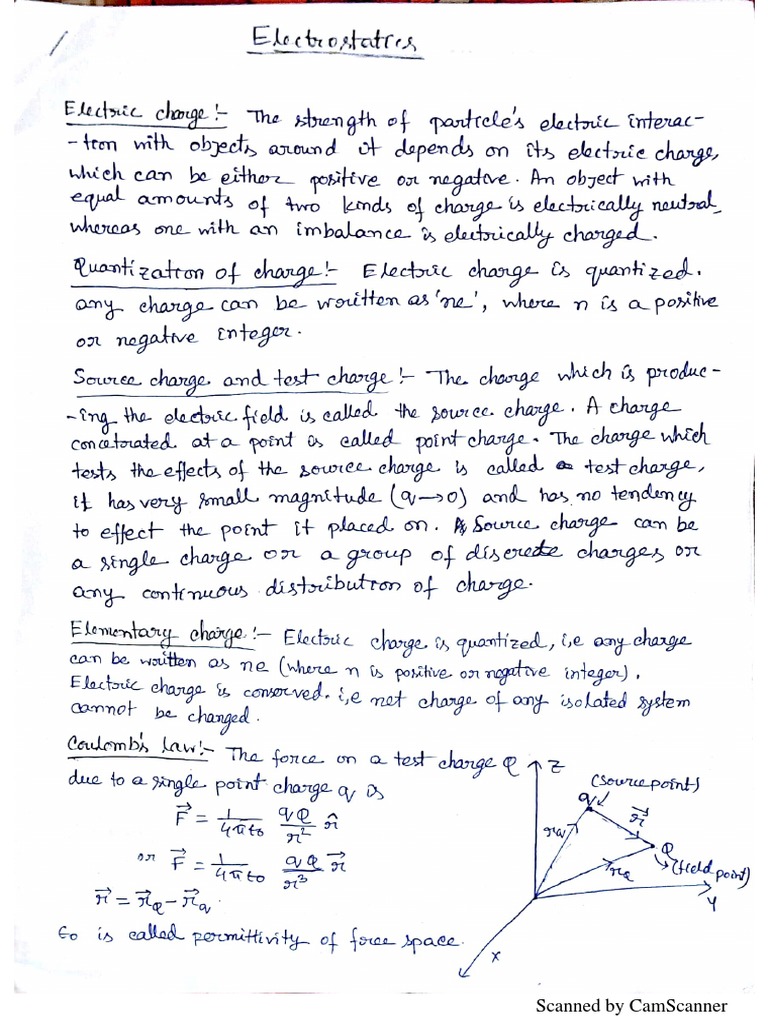 1
Electrostatics
Electric charge:- The strength of particle's electric interac-
-tion with objects around it depends on its electric charge,
which can be either positive or negative. An object with
equal amounts of two kinds of charge is electrically neutral,
whereas one with an imbalance is electrically charged.
Quantization of charge:- Electric charge is quantized.
any charge can be written as 'ne', where n is a positive
or negative integer.
Source charge and test charge:- The charge which is produc-
-ing the electric field is called the source charge. A charge
concetorated at a point is called point charge. The charge which
tests the effects of the source charge is called a test charge,
it has very small magnitude (q→0) and has no tendency
to effect the point it placed on. Source charge can be
a single charge or a group of discrete charges or
any continuous distribution of charge.
Elementary charge:- Electric charge is quantized, i,e any charge
can be written as ne (where n is positive or negative integer).
Electric charge is conserved. i,e net charge of any isolated system
cannot be changed.
Coulomb's law:- The force on a test charge Q
due to a single point charge q is
F⃗ = 1/4πε0 qQ/r² r̂
or F⃗ = 1/4πε0 qQ/r³ r⃗
r⃗ = r⃗Q - r⃗q
ε0 is called permittivity of force space.
Z
(source point)
q
r⃗
rq
Q
rQ
(field point)
Y
X
Scanned by CamScanner